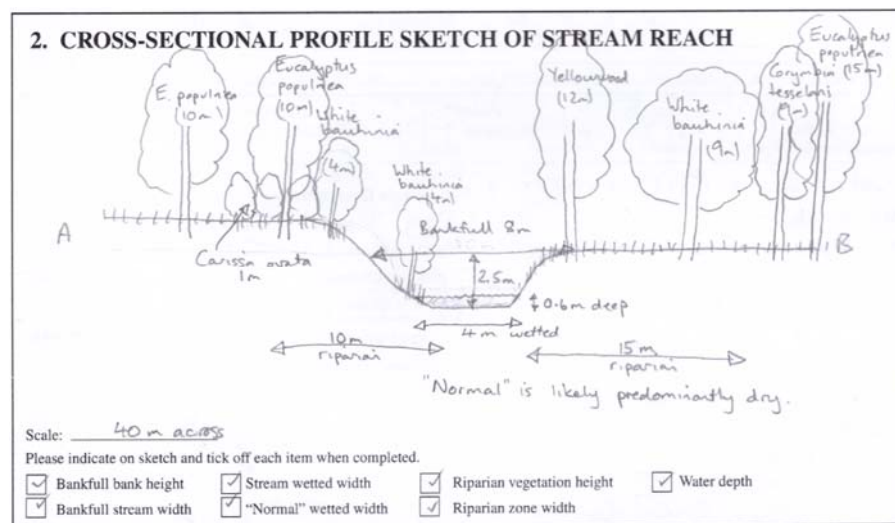 2. CROSS-SECTIONAL PROFILE SKETCH OF STREAM REACH
E. populnea
(10m)
Eucalyptus
populnea
(10m)
White
bauhinia
(4m)
White
bauhinia
(4m)
Yellowwood
(12m)
White
bauhinia
(9m)
Corymbia
(9m)
Eucalyptus
populnea
(15m)
A
Carissa ovata
1m
Bankfull 8m
B
2.5m
0.6m deep
4m wetted
10m
riparian
15m
riparian
"Normal" is likely predominantly dry.
Scale: 40m across
Please indicate on sketch and tick off each item when completed.
Bankfull bank height
Stream wetted width
Riparian vegetation height
Water depth
Bankfull stream width
"Normal" wetted width
Riparian zone width